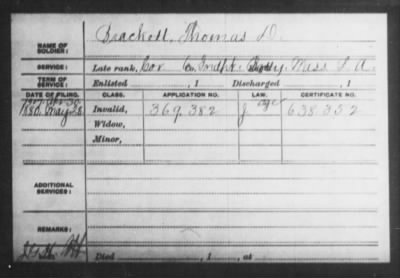 NAME OF SOLDIER: Brackett, Thomas D.
SERVICE: Late rank, Cor Co. Indpt. Batty, Mass L A.
TERM OF SERVICE: Enlisted , 1 Discharged , 1
DATE OF FILING. CLASS. APPLICATION NO. LAW. CERTIFICATE NO.
1880, May 28 Invalid, 369,382 J age 638352
Widow,
Minor,
ADDITIONAL SERVICES:
REMARKS:
Died , 1 , at